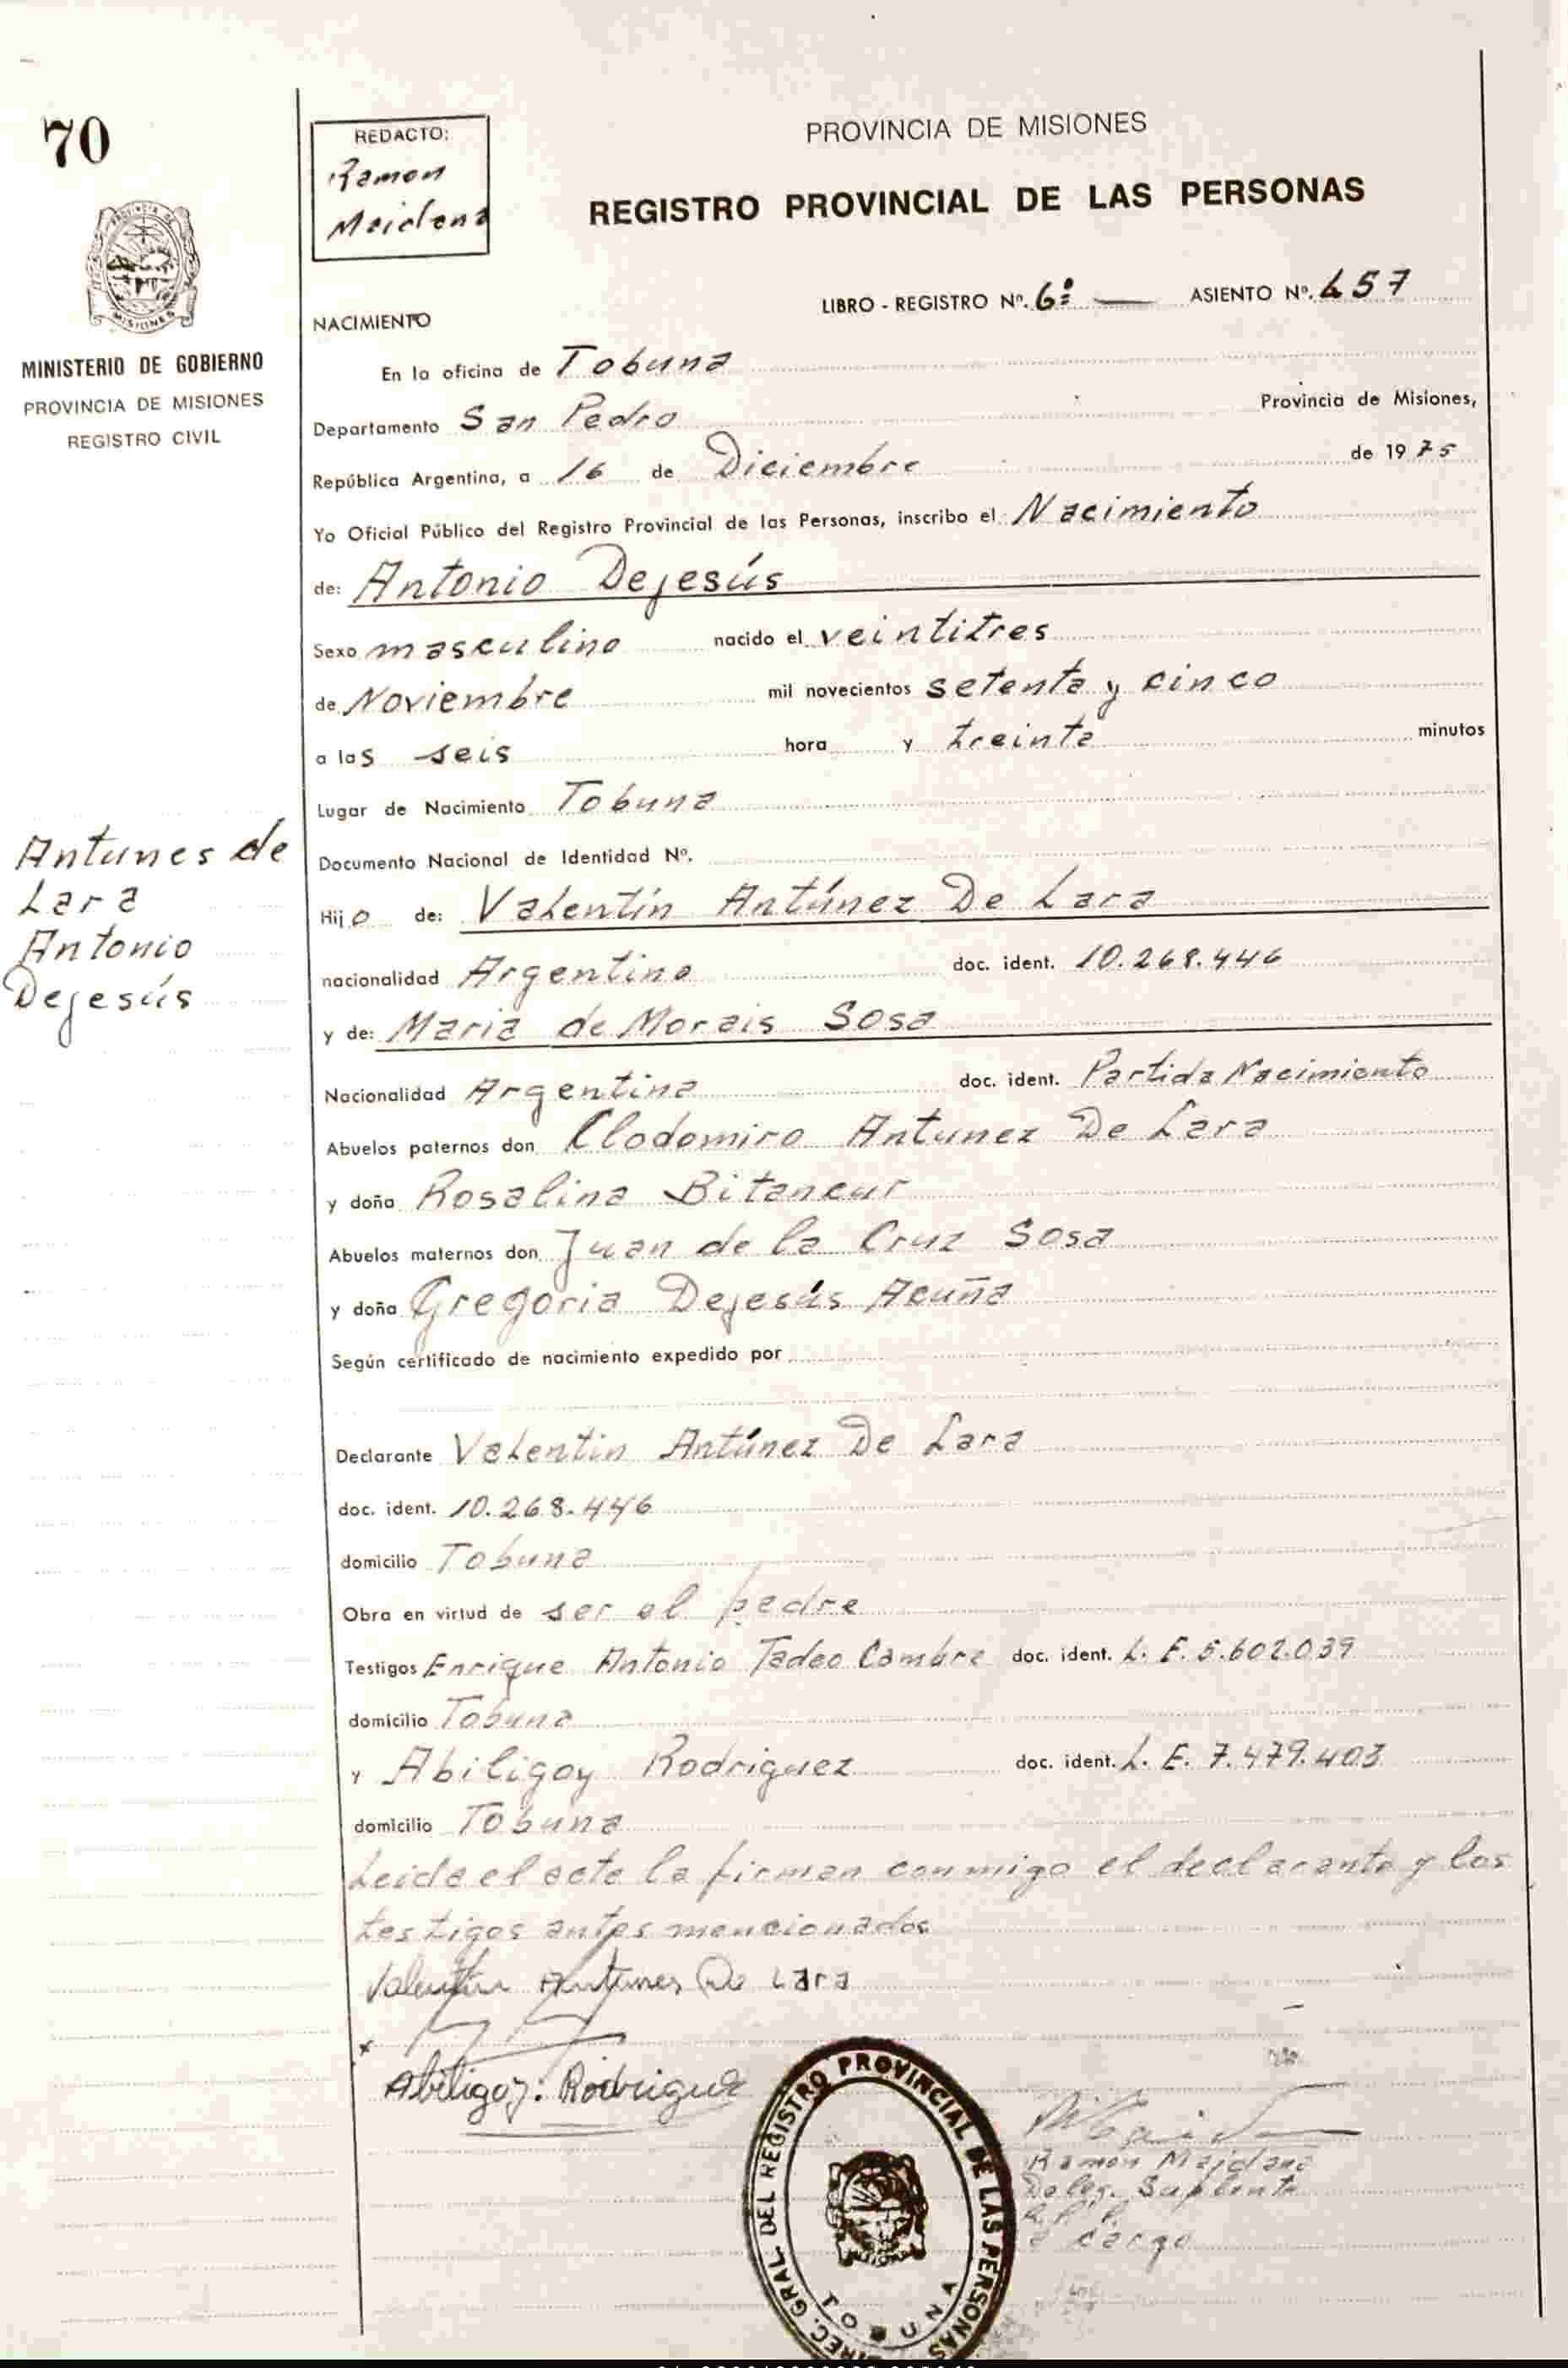 70
REDACTO:
Ramon
Meidana
PROVINCIA DE MISIONES
REGISTRO PROVINCIAL DE LAS PERSONAS
MISIONES
MINISTERIO DE GOBIERNO
PROVINCIA DE MISIONES
REGISTRO CIVIL
LIBRO - REGISTRO Nº. 6º — ASIENTO Nº. 657
NACIMIENTO
En la oficina de Tobuna
Departamento San Pedro Provincia de Misiones,
República Argentina, a 16 de Diciembre de 1975
Yo Oficial Público del Registro Provincial de las Personas, inscribo el Nacimiento
de: Antonio Dejesús
Sexo masculino nacido el veintitres
de Noviembre mil novecientos setenta y cinco
a las seis hora y treinta minutos
Lugar de Nacimiento Tobuna
Documento Nacional de Identidad Nº.
Antunes de
Lara
Antonio
Dejesús
Hijo de: Valentín Antúnez De Lara
nacionalidad Argentino doc. ident. 10.268.446
y de: Maria de Morais Sosa
Nacionalidad Argentina doc. ident. Partida Nacimiento
Abuelos paternos don Clodomiro Antunez De Lara
y doña Rosalina Bitancur
Abuelos maternos don Juan de la Cruz Sosa
y doña Gregoria Dejesús Acuña
Según certificado de nacimiento expedido por
Declarante Valentin Antúnez De Lara
doc. ident. 10.268.446
domicilio Tobuna
Obra en virtud de ser el padre
Testigos Enrique Antonio Tadeo Cambre doc. ident. L. E. 5.602.039
domicilio Tobuna
y Abiligoy Rodriguez doc. ident. L. E. 7.479.403
domicilio Tobuna
Leida el acta la firman conmigo el declarante y los
testigos antes mencionados
Valentin Antunes De Lara
Abiligoy: Rodriguez
DIREC. GRAL. DEL REGISTRO PROVINCIAL DE LAS PERSONAS
TOBUNA
Ramon Majdana
Deleg. Suplente
R. P. P.
a cargo